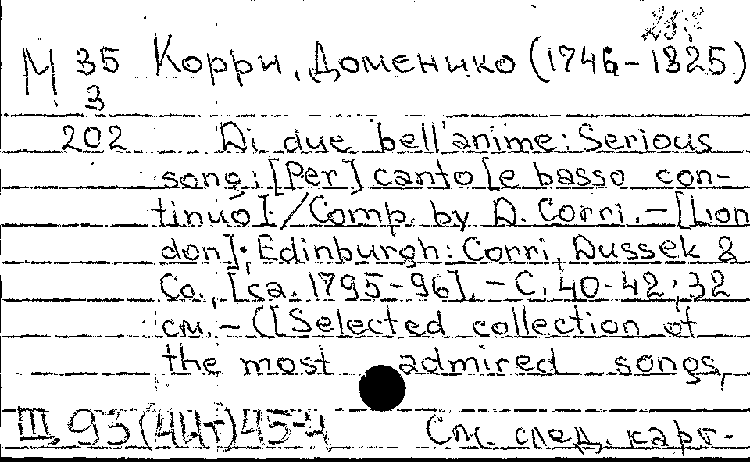 М 35 Корри, Доменико (1746-1825)
3
202 Di due bell'anime: Serious
song: [Per] canto [e basso con-
tinuo] / Comp. by D. Corri. - [Lon
don]; Edinburgh: Corri, Dussek &
Co., [ca. 1795-96]. - С. 40-42; 32
см. - ([Selected collection of
the most admired songs,
Ш 93(4Ит)45-4 См. след. карт.